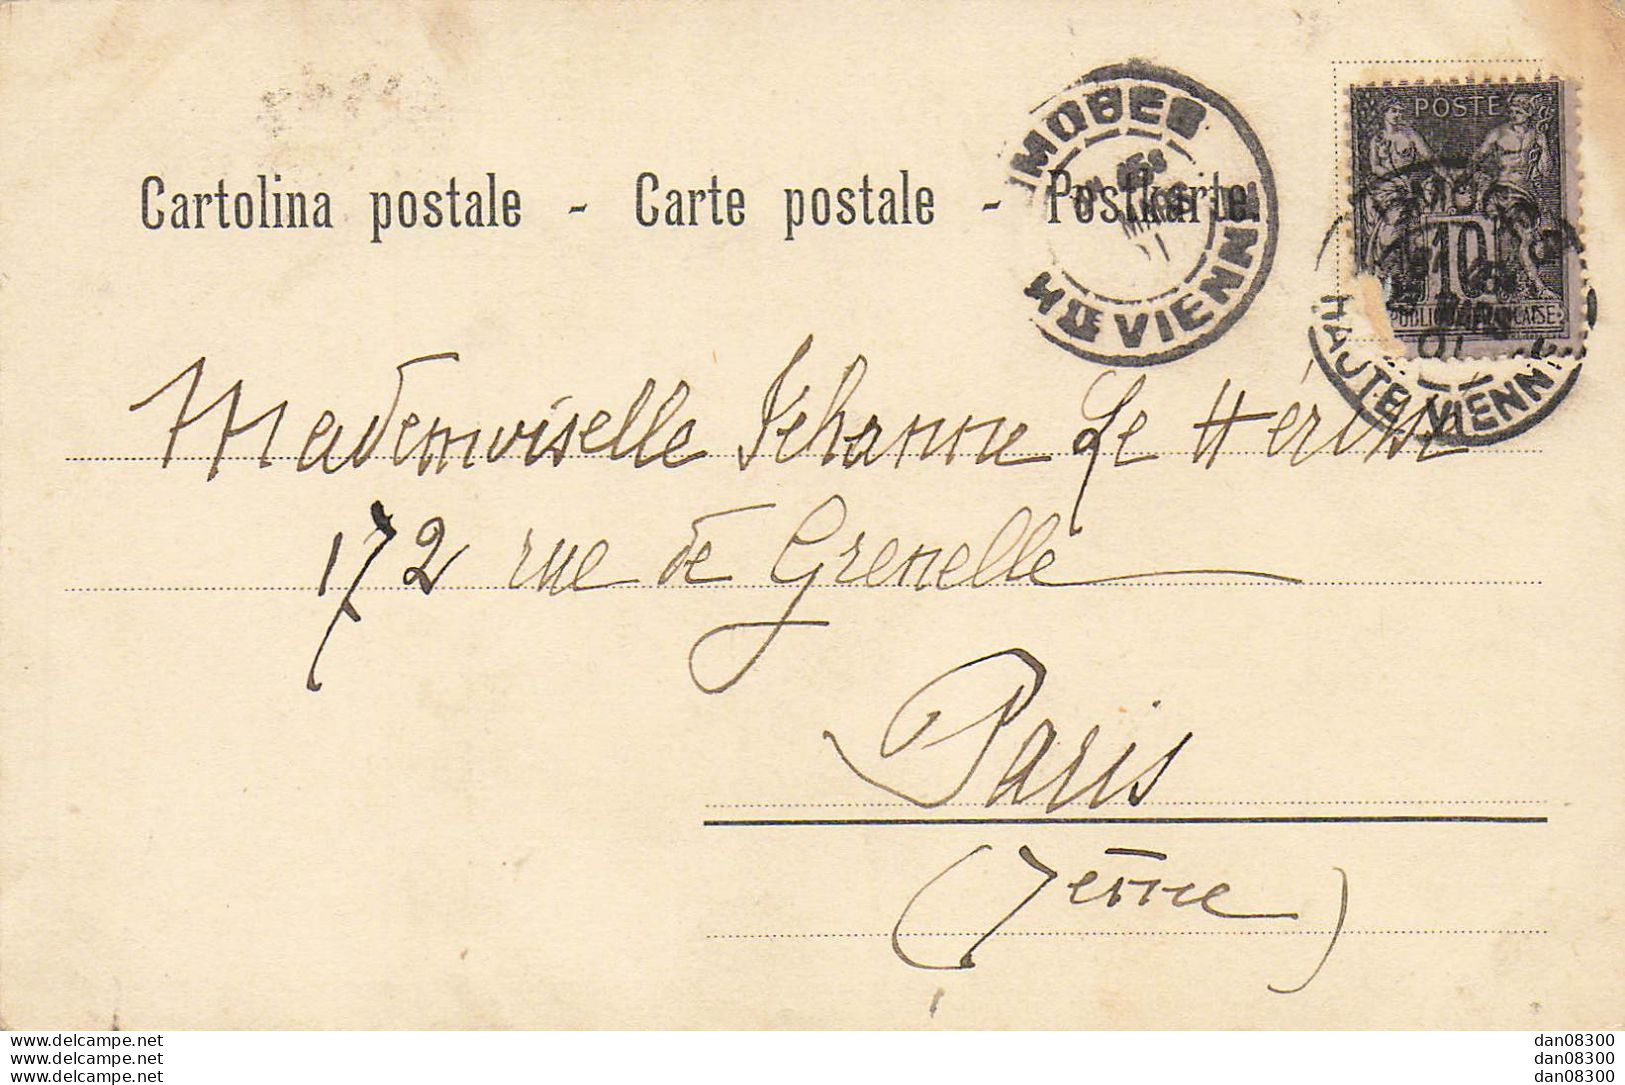 Cartolina postale - Carte postale - Postkarte
POSTE
10
LIMOGES
HTE VIENNE
MARS
01
HAUTE-VIENNE
Mademoiselle Jehanne Le Hérissé
172 rue de Grenelle
Paris
(7eme)
www.delcampe.net
www.delcampe.net
www.delcampe.net
dan08300
dan08300
dan08300